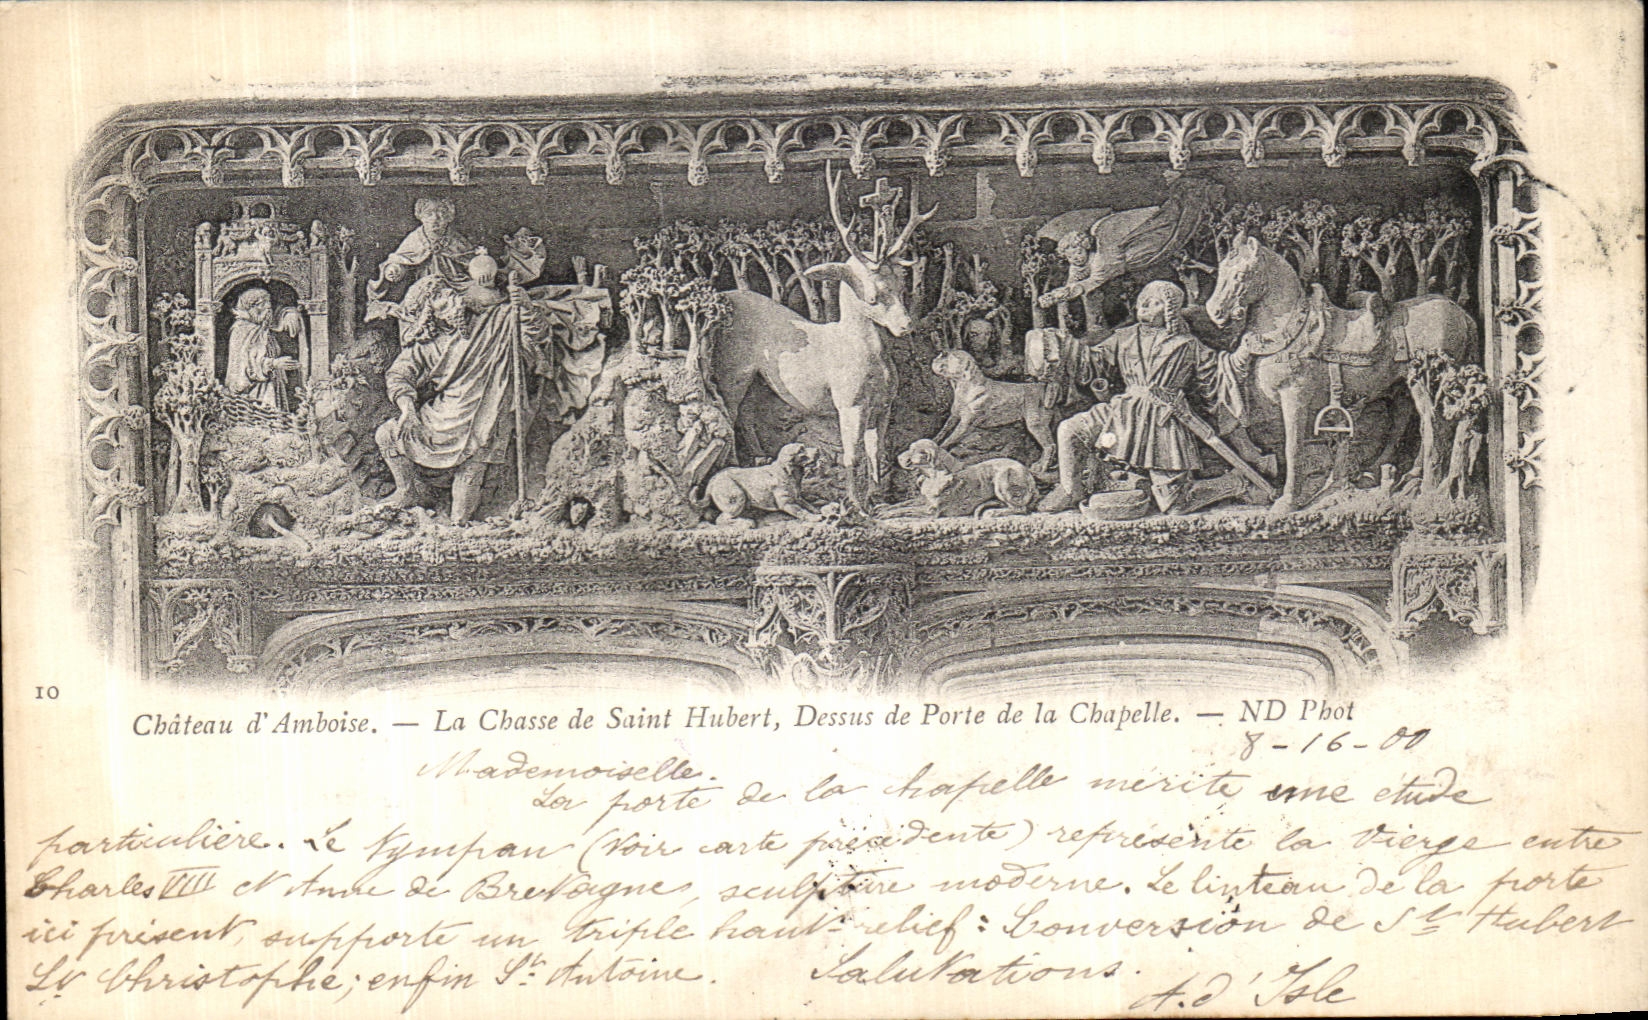 10
Château d'Amboise. — La Chasse de Saint Hubert, Dessus de Porte de la Chapelle. — ND Phot
8-16-00
Mademoiselle.
La porte de la chapelle mérite une étude
particulière. Le tympan (voir carte précédente) représente la Vierge entre
Charles VIII et Anne de Bretagne, sculpture moderne. Le linteau de la porte
ici présent, supporte un triple haut-relief: Conversion de St Hubert
St Christophe; enfin St Antoine. Salutations.
A. d'Isle